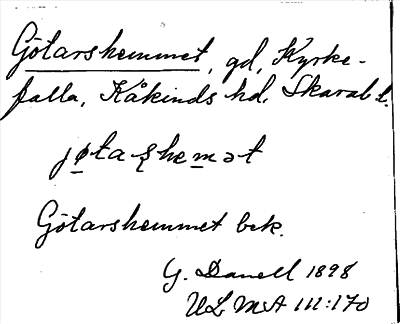 Götarshemmet, gd, Kyrke-
falla, Kåkinds hd. Skarab. l.
jøtaʂhemət
Götarshemmet bek.
G. Danell 1898
ULMA 111:170